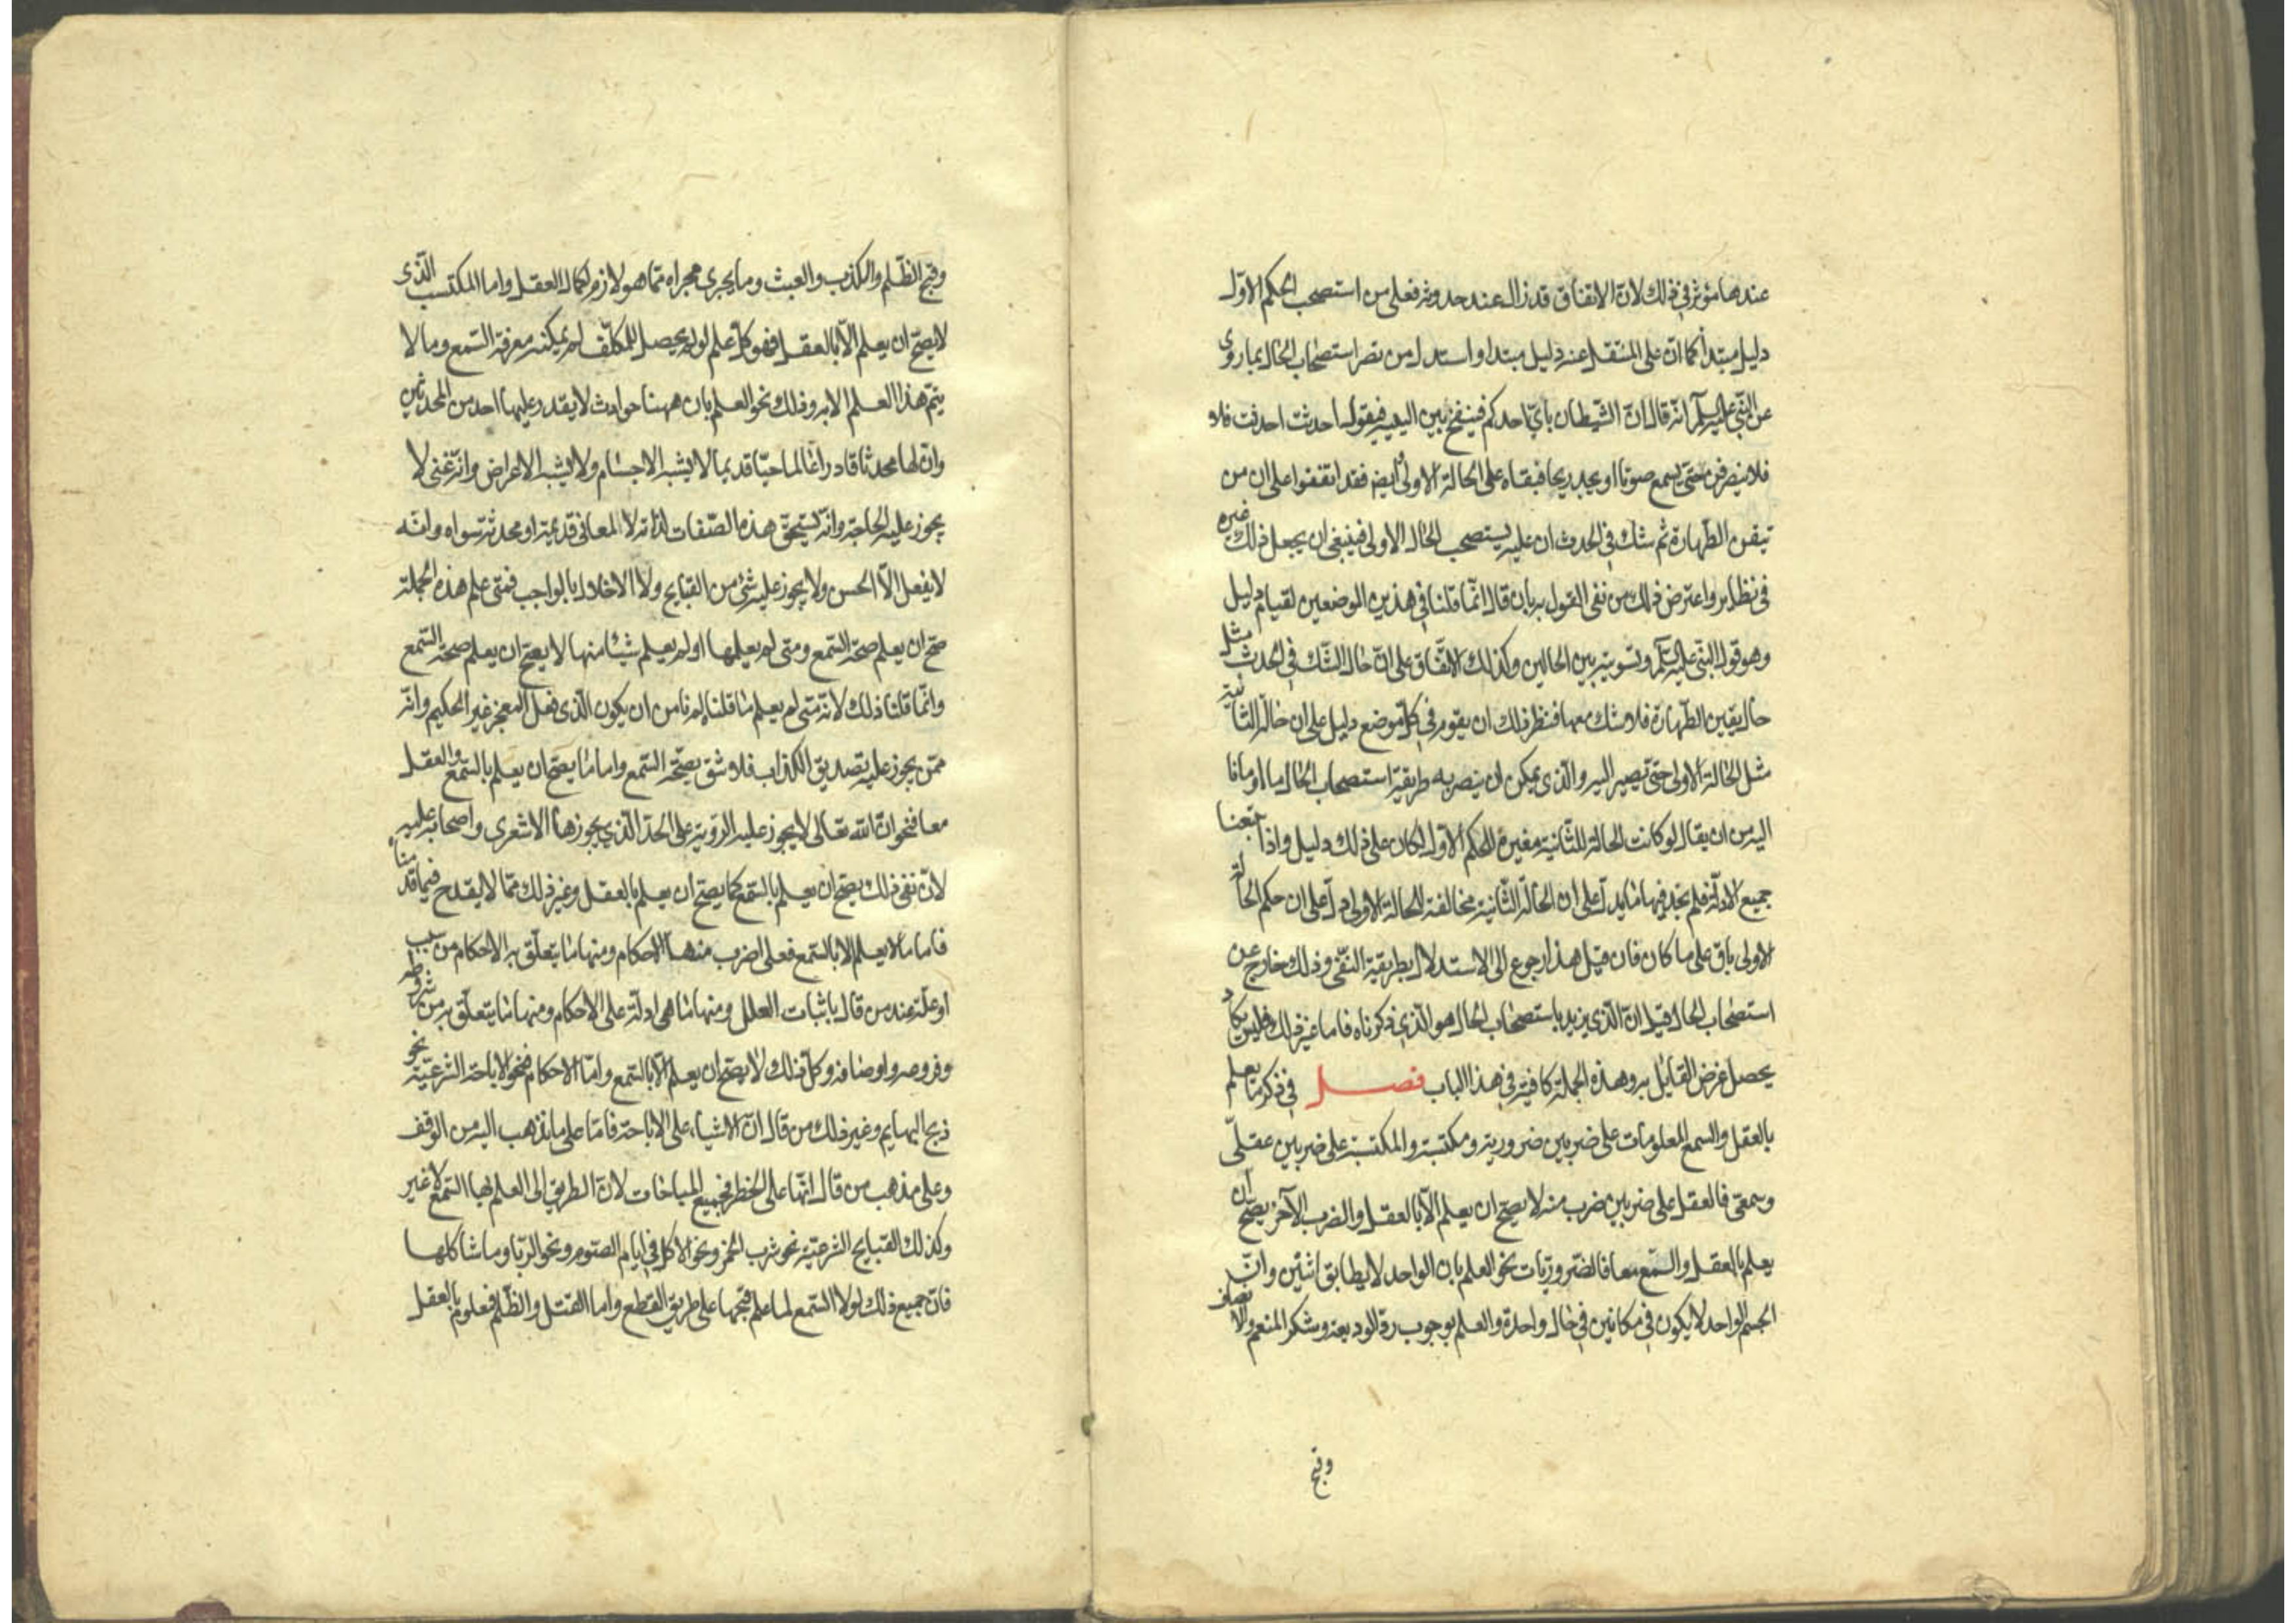 عندها مؤثر في ذلك لان الاتفاق قد زال عند حدوثه فعلى من استصحب الحكم الاول
دليل مبتدأ كما ان على المنتقل عنه دليل مبتدا واستدل من نصر استصحاب الحال بما روى
عن النبي عليه السلم انه قال ان الشيطان يأتي احدكم فينفخ بين اليتيه فيقول احدثت احدثت فلا
فلا ينصرفن حتى يسمع صوتا او يجد ريحا فبقاه على الحالة الاولى ايضا فقد اتفقوا على ان من
تيقن الطهارة ثم شك في الحدث ان عليه يستصحب الحال الاولى فينبغي ان يجعل ذلك غيره
في نظايره واعترض ذلك من نفى القول به بان قال انما قلنا في هذين الموضعين لقيام دليل
وهو قول النبي عليه السلم وتسويته بين الحالين وكذلك الاتفاق على ان حال الشك في الحدث مثل
حال يقين الطهارة فلا شك معها فنظر ذلك ان يقوم في كل موضع دليل على ان حال الثانية
مثل الحالة الاولى حتى تصير اليه والذي يمكن ان ينصر به طريقة استصحاب الحال ما اومانا
اليه من ان يقال لو كانت الحالة الثانية مغيرة للحكم الاول لكان على ذلك دليل واذا تتبعنا
جميع الادلة فلم نجد فيها ما يدل على ان الحالة الثانية مخالفة للحالة الاولى دل على ان حكم الحالة
الاولى باق على ما كان فان قيل هذا رجوع الى الاستدلال بطريقة النفي وذلك خارج عن
استصحاب الحال قيل ان الذي يزيد باستصحاب الحال هو الذي ذكرناه فاما غير ذلك فليس يكاد
يحصل غرض القايل به وهذه الجملة كافية في هذا الباب فصل في ذكر ما يعلم
بالعقل والسمع المعلومات على ضربين ضرورية ومكتسبة والمكتسبة على ضربين عقلي
وسمعي فالعقل على ضربين ضرب منه لا يصح ان يعلم الا بالعقل والضرب الآخر يصح ان
يعلم بالعقل والسمع معا فالضروريات نحو العلم بان الواحد لا يطابق اثنين وان
الجسم الواحد لا يكون في مكانين في حال واحدة والعلم بوجوب رد الوديعة وشكر المنعم والانصاف
وقبح
وقبح الظلم والكذب والعبث وما يجري مجراه مما هو لازم لكمال العقل واما المكتسب الذي
لا يصح ان يعلم الا بالعقل فهو كل علم لو لم يحصل للمكلف لم يمكنه معرفة السمع وما لا
يتم هذا العلم الا به وذلك نحو العلم بان ههنا حوادث لا يقدر عليها احد من المحدثين
وان لها محدثا قادرا عالما حيا قديما لا يشبه الاجسام ولا يشبه الاعراض وانه غني لا
يجوز عليه الحاجة وانه يستحق هذه الصفات لذاته لا لمعاني قديمة او محدثة سواه وانه
لا يفعل الا الحسن ولا يجوز عليه شئ من القبايح ولا الاخلال بالواجب فمتى علم هذه الجملة
صح ان يعلم صحة السمع ومتى لم يعلمها او لم يعلم شيئا منها لا يصح ان يعلم صحة السمع
وانما قلنا ذلك لانه متى لم يعلم ما قلنا لم نامن ان يكون الذي فعل المعجز غير الحكيم وانه
ممن يجوز عليه تصديق الكذاب فلا نثق بصحة السمع واما ما يصح ان يعلم بالسمع والعقل
معا فنحو ان الله تعالى لا يجوز عليه الرؤية على الحد الذي يجوزها الاشعري واصحابه عليه
لان نفي ذلك يصح ان يعلم بالسمع كما يصح ان يعلم بالعقل وغير ذلك مما لا يقدح فيما قدمناه
فاما ما لا يعلم الا بالسمع فعلى اضرب منها الاحكام ومنها ما يتعلق به الاحكام من سبب
او علة عند من قال باثبات العلل ومنها ما هي ادلة على الاحكام ومنها ما يتعلق به من شروطه
وفروعه واوصافه وكل ذلك لا يصح ان يعلم الا بالسمع واما الاحكام فنحو الاباحة الشرعية نحو
ذبح البهايم وغير ذلك من قال ان الاشياء على الاباحة فاما على ما نذهب اليه من الوقف
وعلى مذهب من قال انها على الحظر فجميع المباحات لان الطريق الى العلم بها السمع لا غير
وكذلك القبايح الشرعية نحو شرب الخمر ونحو الاكل في ايام الصوم ونحو الربا وما شاكلها
فان جميع ذلك لولا السمع لما علم قبحها على طريق القطع واما القتل والظلم فمعلوم بالعقل